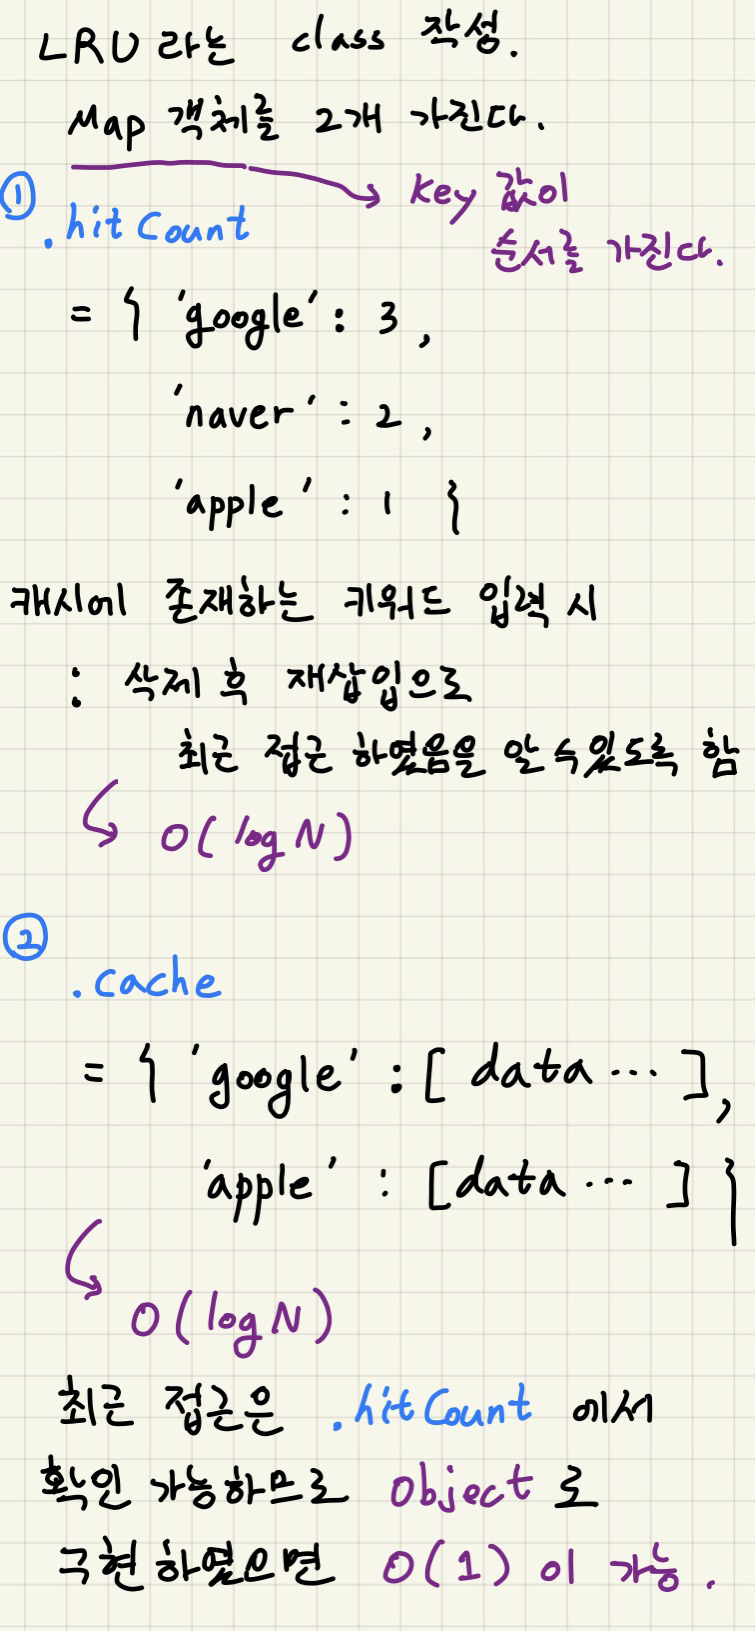 LRU 라는 class 작성.
Map 객체를 2개 가진다.
key 값이
순서를 가진다.
① .hitCount
= { 'google' : 3,
'naver' : 2,
'apple' : 1 }
캐시에 존재하는 키워드 입력 시
: 삭제 후 재삽입으로
최근 접근 하였음을 알 수 있도록 함
O(logN)
② .cache
= { 'google' : [ data ... ],
'apple' : [data ... ] }
O(logN)
최근 접근은 .hitCount 에서
확인 가능하므로 Object 로
구현 하였으면 O(1) 이 가능.